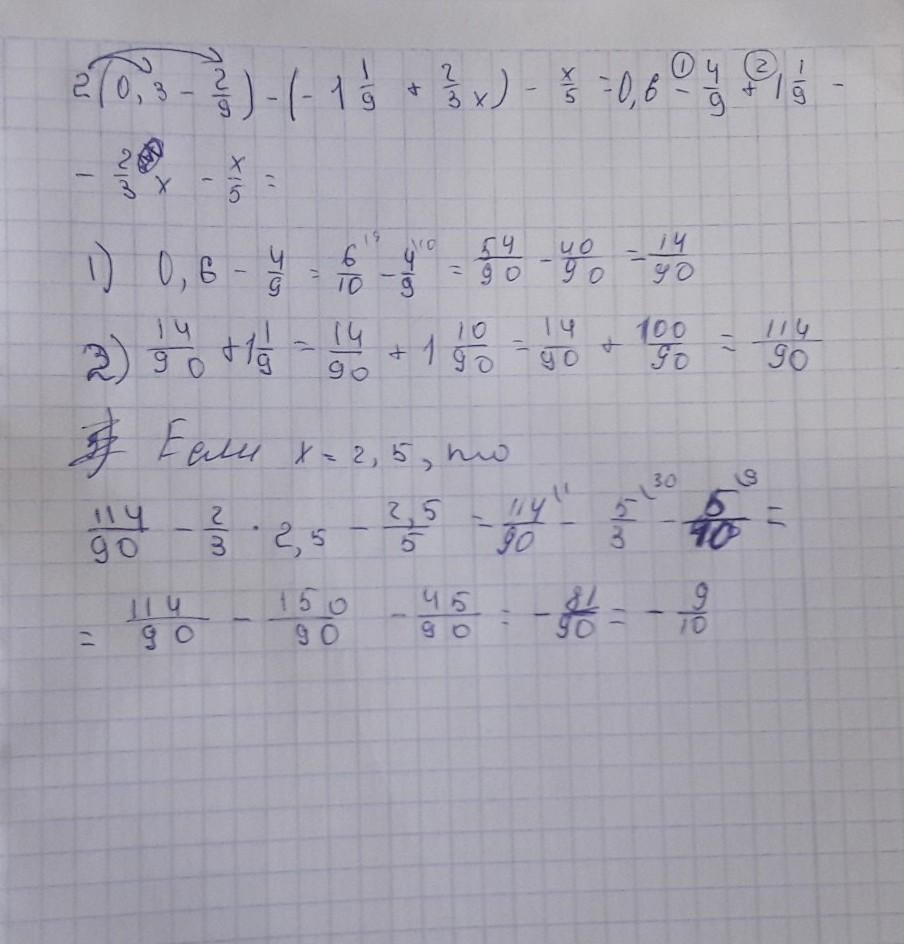 2(0,3 - 2/9) - (-1 1/9 + 2/3 x) - x/5 = 0,6 -① 4/9 +② 1 1/9 -
- 2/3 x - x/5 =
1) 0,6 - 4/9 = 6/10 \9 - 4/9 \10 = 54/90 - 40/90 = 14/90
2) 14/90 + 1 1/9 = 14/90 + 1 10/90 = 14/90 + 100/90 = 114/90
Если x = 2,5, то
114/90 - 2/3 · 2,5 - 2,5/5 = 114/90 \1 - 5/3 \30 - 5/10 \9 =
= 114/90 - 150/90 - 45/90 = - 81/90 = - 9/10